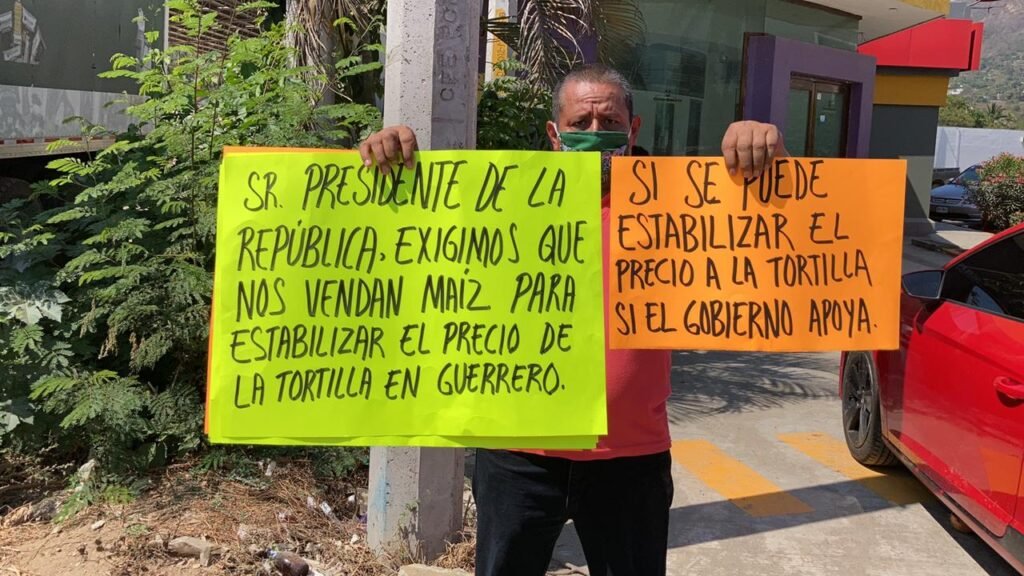 SR. PRESIDENTE DE LA
REPÚBLICA, EXIGIMOS QUE
NOS VENDAN MAÍZ PARA
ESTABILIZAR EL PRECIO DE
LA TORTILLA EN GUERRERO.
SI SE PUEDE
ESTABILIZAR EL
PRECIO A LA TORTILLA
SI EL GOBIERNO APOYA.